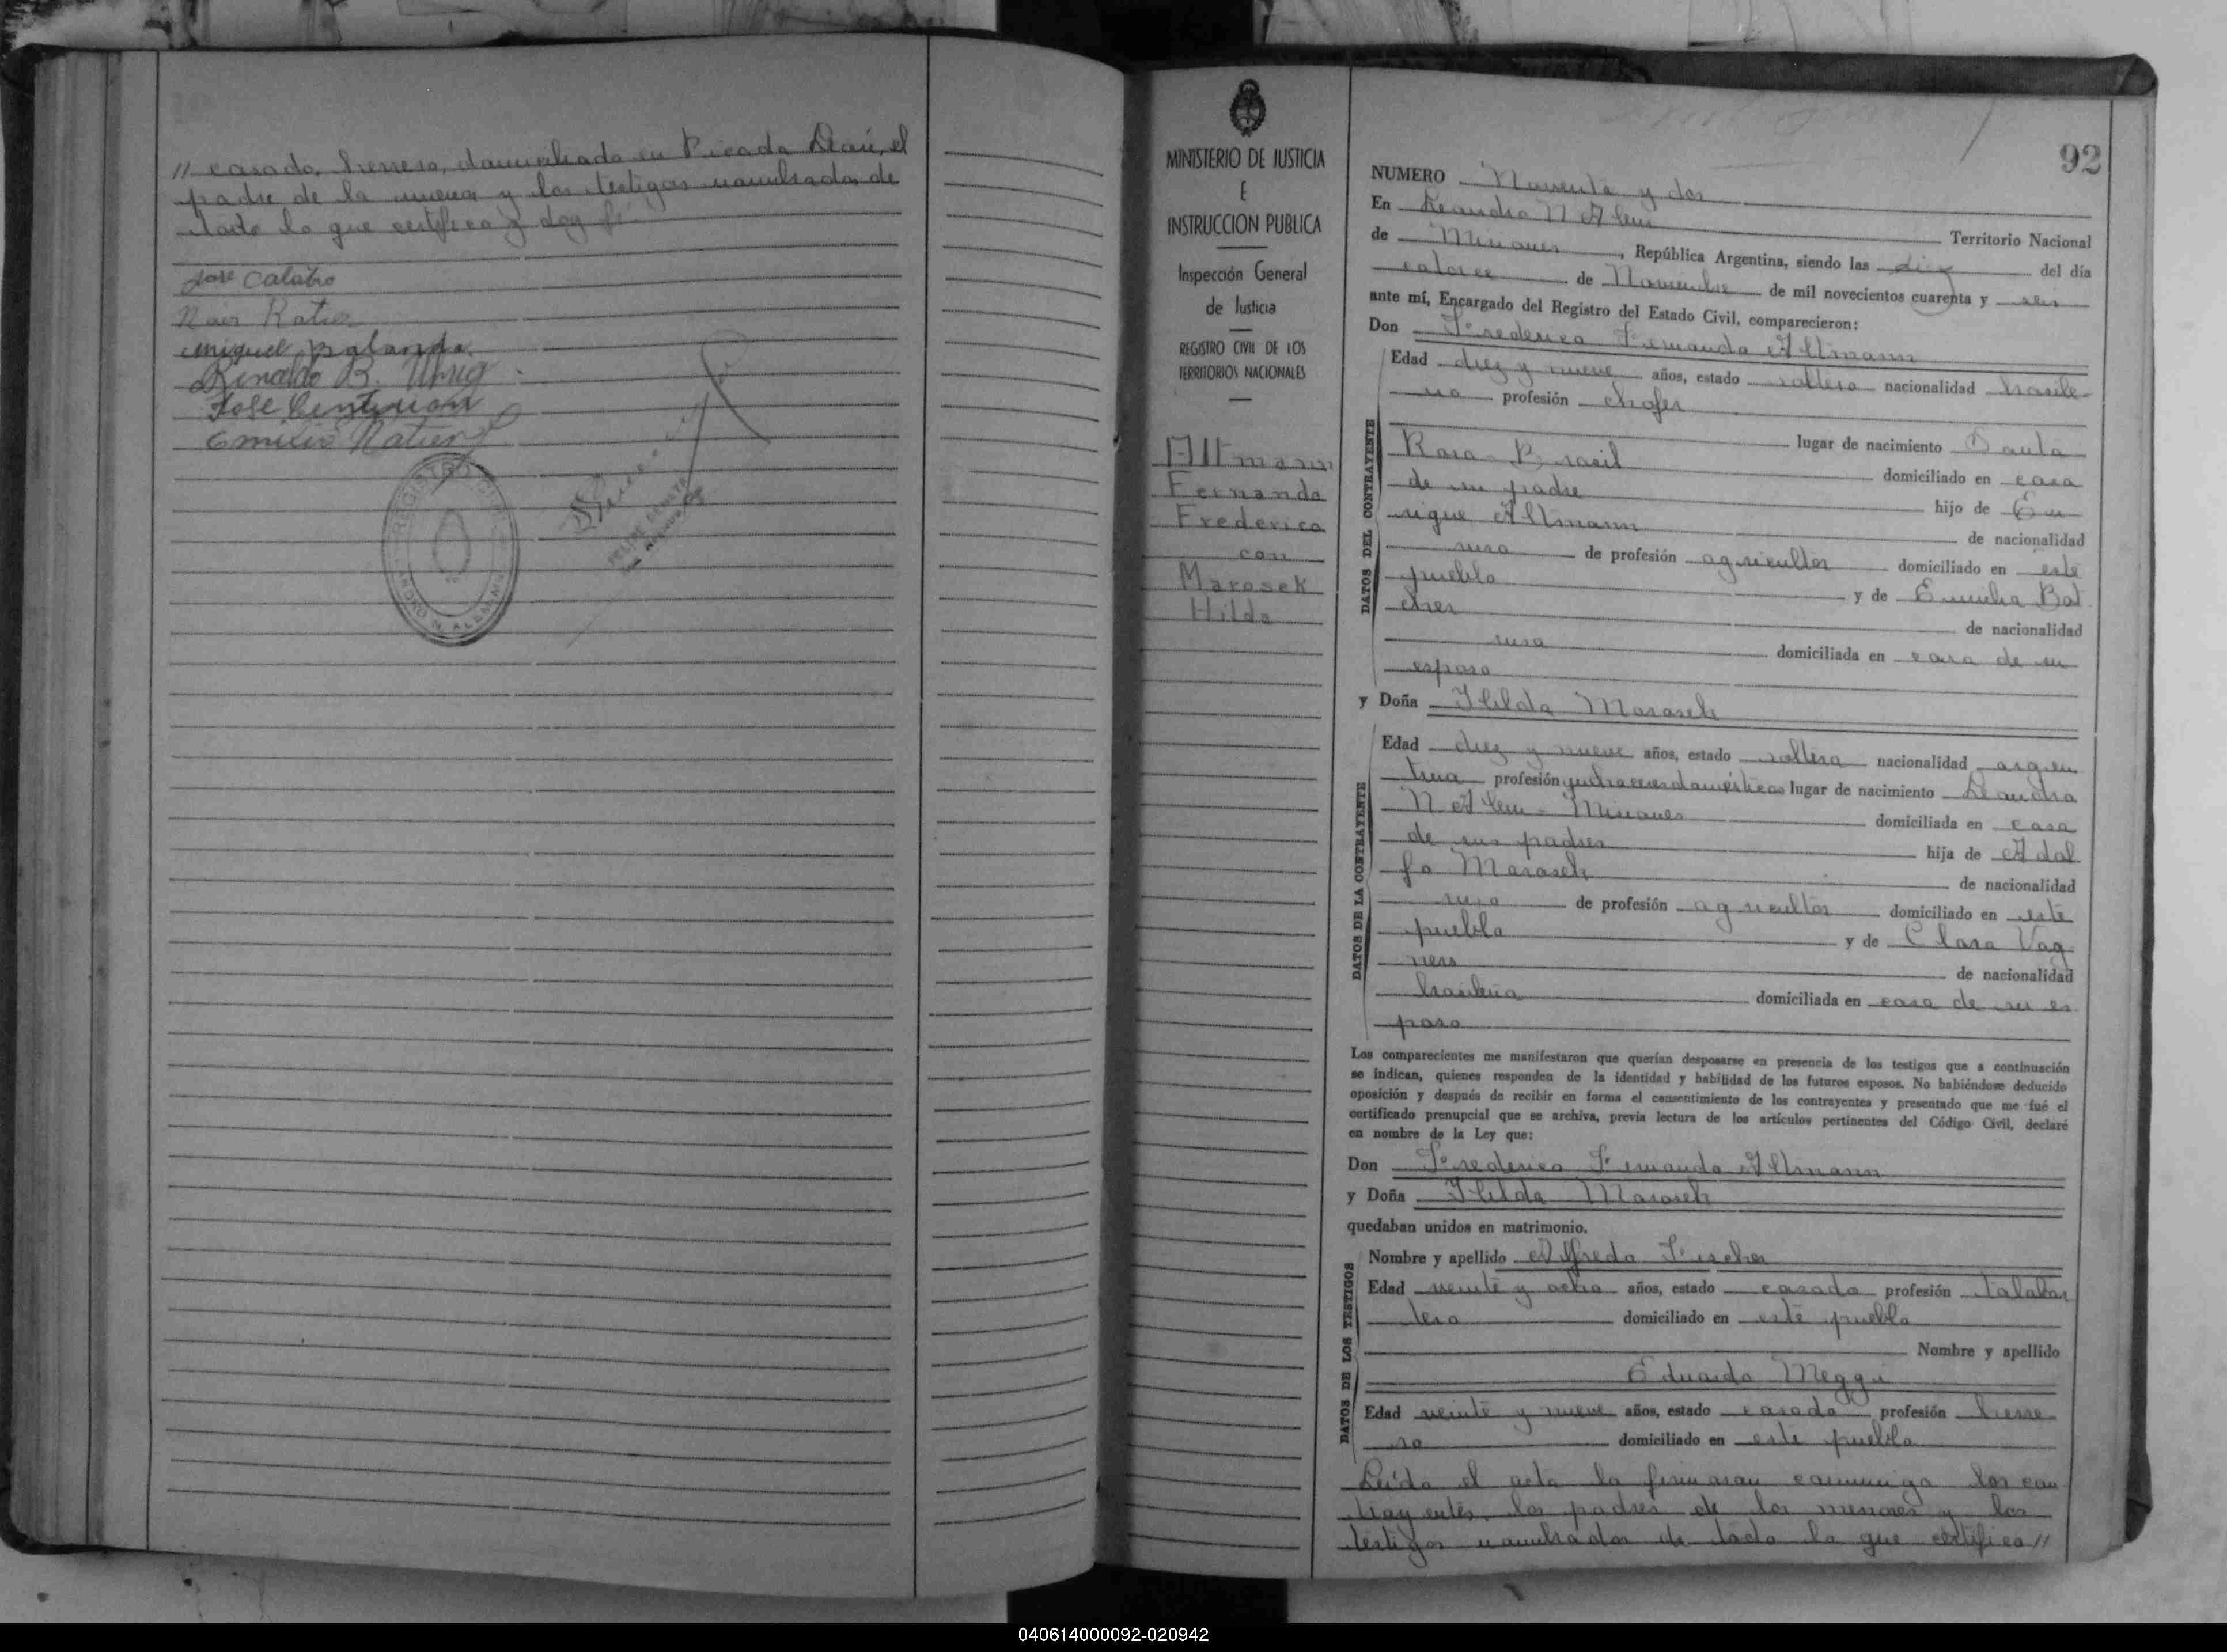 // casado, herrero, domiciliado en Picada Leaú, el
padre de la menor y los testigos nombrados de
todo lo que certifico y doy fé
José Calabro
Nair Ratier
Miguel Balanda
Rinaldo B. Uhrig
José Centurion
Emilio Ratier
REGISTRO CIVIL
LEANDRO N. ALEM
MINISTERIO DE JUSTICIA
E
INSTRUCCION PUBLICA
Inspección General
de Justicia
REGISTRO CIVIL DE LOS
TERRITORIOS NACIONALES
Altmann
Fernando
Frederico
con
Marosek
Hilda
92
NUMERO Noventa y dos
En Leandro N Alem Territorio Nacional
de Misiones, República Argentina, siendo las diez del día
catorce de Noviembre de mil novecientos cuarenta y seis
ante mí, Encargado del Registro del Estado Civil, comparecieron:
Don Frederico Fernando Altmann
DATOS DEL CONTRAYENTE
Edad diez y nueve años, estado soltero nacionalidad brasile-
no profesión chofer
lugar de nacimiento Santa
Rosa - Brasil domiciliado en casa
de su padre hijo de En
rique Altmann de nacionalidad
ruso de profesión agricultor domiciliado en este
pueblo y de Emilia Bot
cher de nacionalidad
rusa domiciliada en casa de su
esposo
y Doña Hilda Marosek
DATOS DE LA CONTRAYENTE
Edad diez y nueve años, estado soltera nacionalidad argen
tina profesión quehaceres domésticos lugar de nacimiento Leandro
N Alem - Misiones domiciliada en casa
de sus padres hija de Adol
fo Marosek de nacionalidad
ruso de profesión agricultor domiciliado en este
pueblo y de Clara Vag
ners de nacionalidad
brasileña domiciliada en casa de su es
poso
Los comparecientes me manifestaron que querían desposarse en presencia de los testigos que a continuación
se indican, quienes responden de la identidad y habilidad de los futuros esposos. No habiéndose deducido
oposición y después de recibir en forma el consentimiento de los contrayentes y presentado que me fué el
certificado prenupcial que se archiva, previa lectura de los artículos pertinentes del Código Civil, declaré
en nombre de la Ley que:
Don Frederico Fernando Altmann
y Doña Hilda Marosek
quedaban unidos en matrimonio.
DATOS DE LOS TESTIGOS
Nombre y apellido Alfredo Fischer
Edad veinte y ocho años, estado casado profesión talabar
tero domiciliado en este pueblo
Nombre y apellido
Eduardo Meggi
Edad veinte y nueve años, estado casado profesión herre
ro domiciliado en este pueblo
Leída el acta la firmaran conmigo los con
trayentes, los padres de los menores y los
testigos nombrados de todo lo que certifico //
040614000092-020942